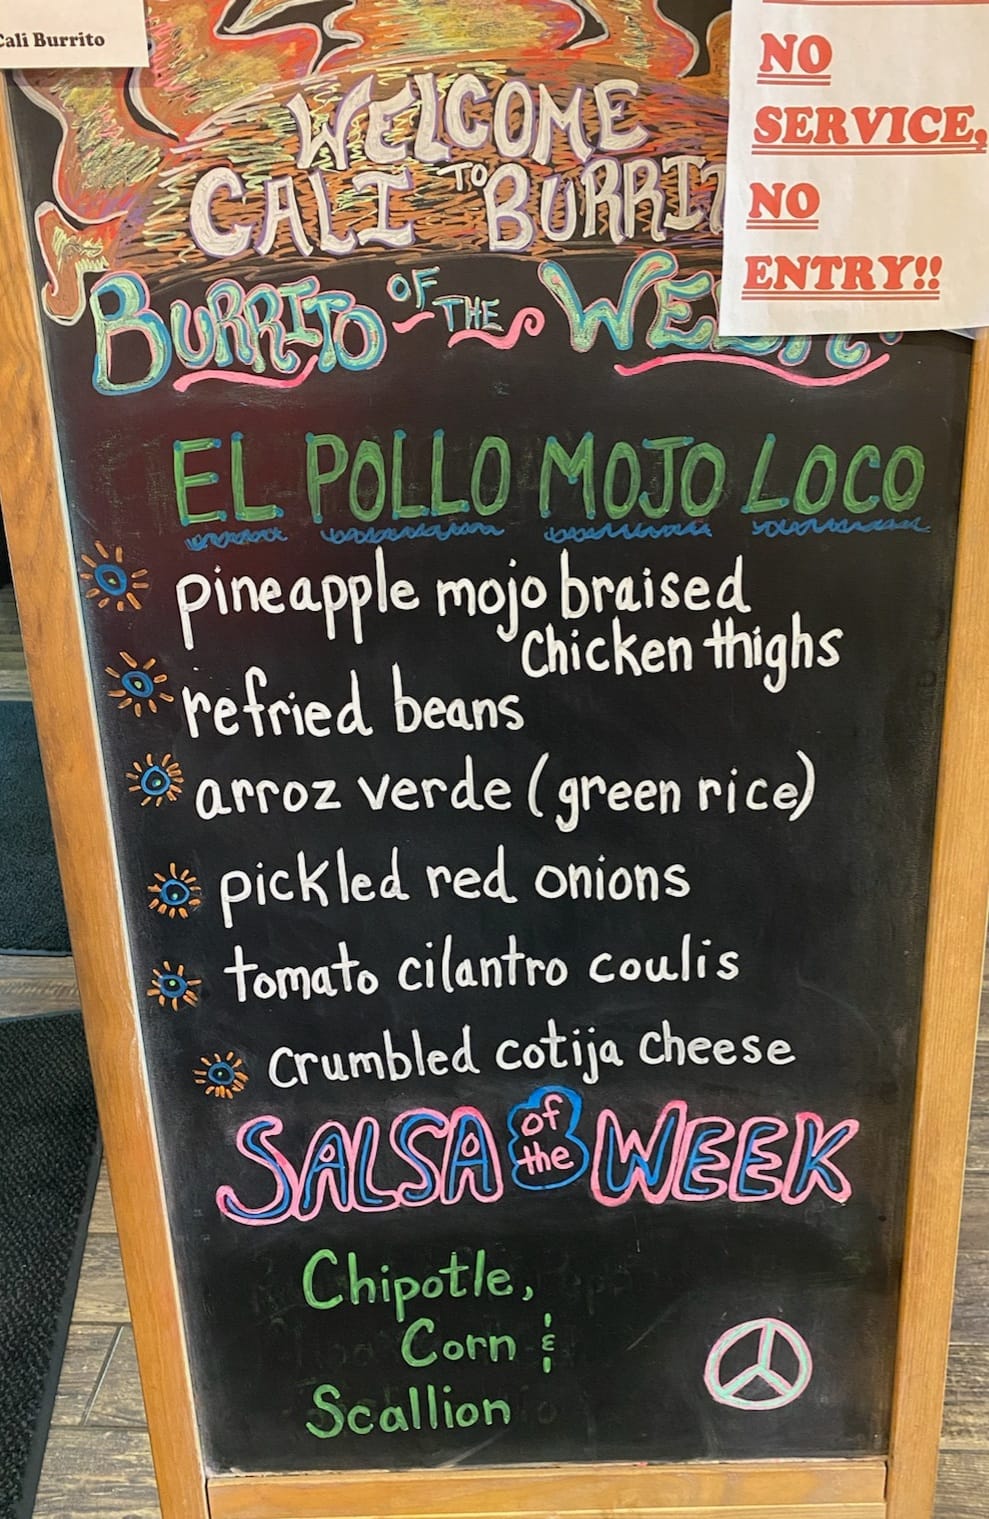 Cali Burrito
NO
SERVICE,
NO
ENTRY!!
WELCOME
TO
CALI BURRIT
BURRITO OF THE
EL POLLO MOJO LOCO
pineapple mojo braised
chicken thighs
refried beans
arroz verde (green rice)
pickled red onions
tomato cilantro coulis
crumbled cotija cheese
SALSA of the WEEK
Chipotle,
Corn &
Scallion